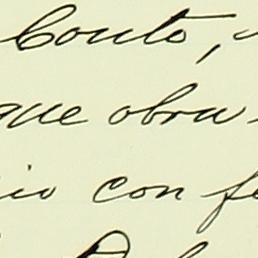 Couto,
que obra
io con fe